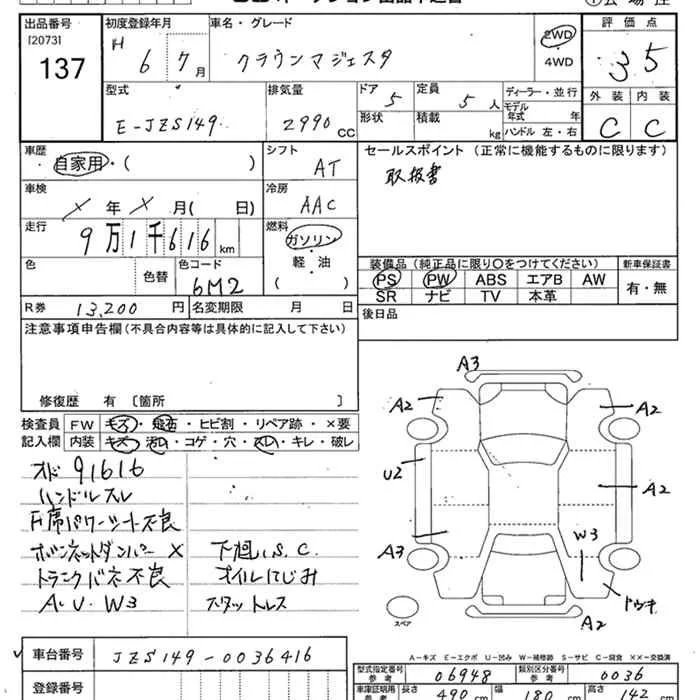 オークション出品申込書
①会場控
出品番号 初度登録年月 車名・グレード 2WD 評価点
[2073] H 6 7月 クラウンマジェスタ 4WD 3.5
137
型式 排気量 ドア 定員 ディーラー・並行 外装 内装
E-JZS149 2990CC 5 5人 モデル年式 年 C C
形状 積載 kg ハンドル 左・右
車歴 シフト セールスポイント (正常に機能するものに限ります)
・自家用・( ) AT 取扱書
車検 冷房
× 年 × 月( 日) AAC
走行 燃料
9万1千616km ガソリン・軽・油( )
装備品(純正品に限り○をつけてください) 新車保証書
色 色替 色コード PS PW ABS エアB AW 有・無
6M2 SR ナビ TV 本革
R券 13,200円 名変期限 月 日 後日品
注意事項申告欄(不具合内容等は具体的に記入して下さい)
修復歴 有 〔箇所 〕
検査員 FW キズ・飛石・ヒビ割・リペア跡・×要
記入欄 内装 キズ・汚れ・コゲ・穴・スレ・キレ・破レ
オド 91616
ハンドルスレ
F席パワーシート不良
ボンネットダンパー× 下廻りS.C.
トランクバネ不良 オイルにじみ
A.U.W3 スタットレス
A3
A2 A2
U2 A2
W3
A3
ドウキ
A2
スペア
A-キズ E-エクボ U-凹み W-補修跡 S-サビ C-腐食 XX-交換済
車台番号 JZS149-0036416
登録番号
型式指定番号 参考 06948 類別区分番号 参考 0036
車庫証明用 参考 長さ 490cm 幅 180cm 高さ 142cm